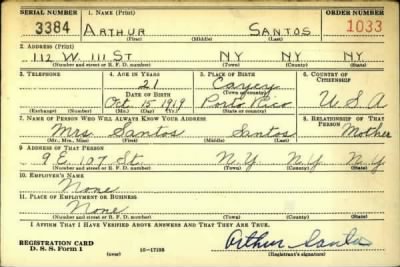 SERIAL NUMBER 1. NAME (Print) ORDER NUMBER
3384 ARTHUR SANTOS 1033
(First) (Middle) (Last)
2. ADDRESS (Print)
112 W. 111 ST NY NY NY
(Number and street or R. F. D. number) (Town) (County) (State)
3. TELEPHONE 4. AGE IN YEARS 5. PLACE OF BIRTH 6. COUNTRY OF CITIZENSHIP
21 Cayey
DATE OF BIRTH (Town or county)
Oct 15 1919 Porto Rico U.S.A
(Exchange) (Number) (Mo.) (Day) (Yr.) (State or country)
7. NAME OF PERSON WHO WILL ALWAYS KNOW YOUR ADDRESS 8. RELATIONSHIP OF THAT PERSON
Mrs. Santos Santos Mother
(Mr., Mrs., Miss) (First) (Middle) (Last)
9. ADDRESS OF THAT PERSON
9 E. 107 St. N.Y. N.Y. N.Y
(Number and street or R. F. D. number) (Town) (County) (State)
10. EMPLOYER'S NAME
None
11. PLACE OF EMPLOYMENT OR BUSINESS
None
(Number and street or R. F. D. number) (Town) (County) (State)
I AFFIRM THAT I HAVE VERIFIED ABOVE ANSWERS AND THAT THEY ARE TRUE.
REGISTRATION CARD Arthur Santos
D. S. S. Form 1 (over) 16—17105 (Registrant's signature)